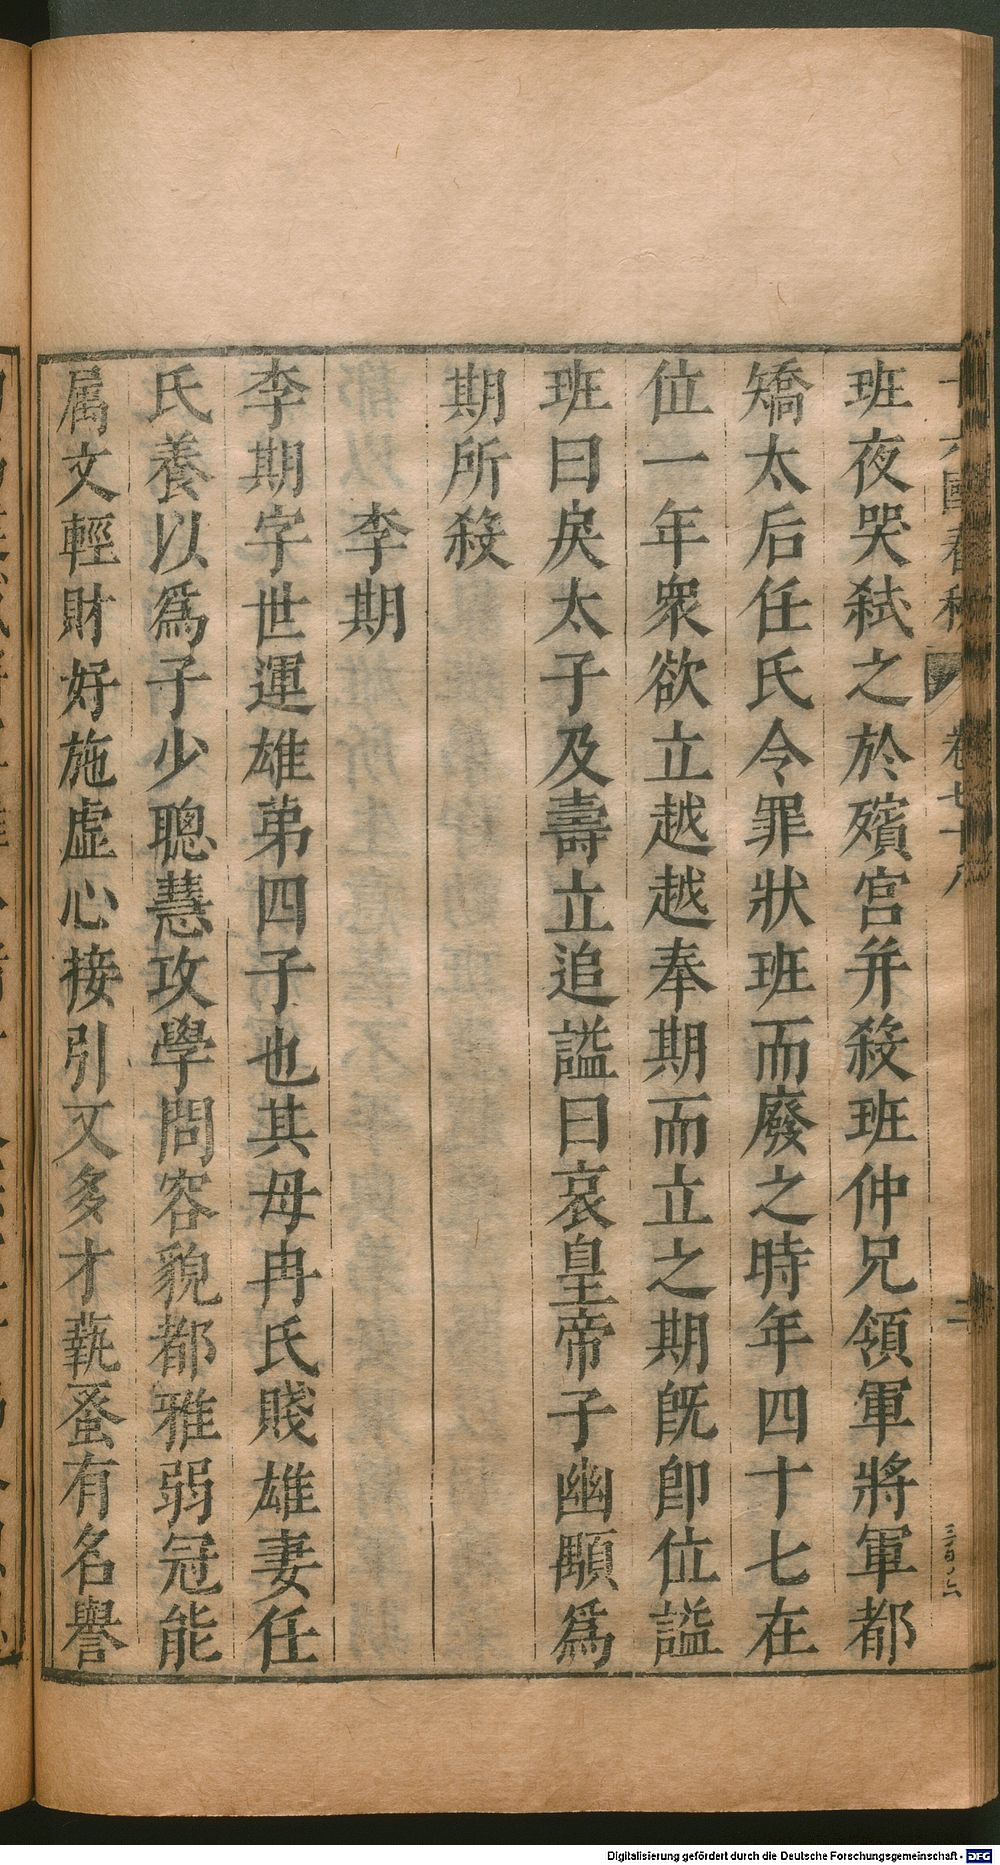 班夜哭弑之於殯宮并殺班仲兄領軍將軍都
矯太后任氏令罪狀班而廢之時年四十七在
位一年衆欲立越越奉期而立之期旣卽位謚
班曰戾太子及壽立追謚曰哀皇帝子幽顒爲
期所殺
李期
李期字世運雄弟四子也其母冉氏賤雄妻任
氏養以爲子少聰慧攻學問容貌都雅弱冠能
属文輕財好施虚心接引又多才藝蚤有名譽
卷七十八
二
Digitalisierung gefördert durch die Deutsche Forschungsgemeinschaft - DFG